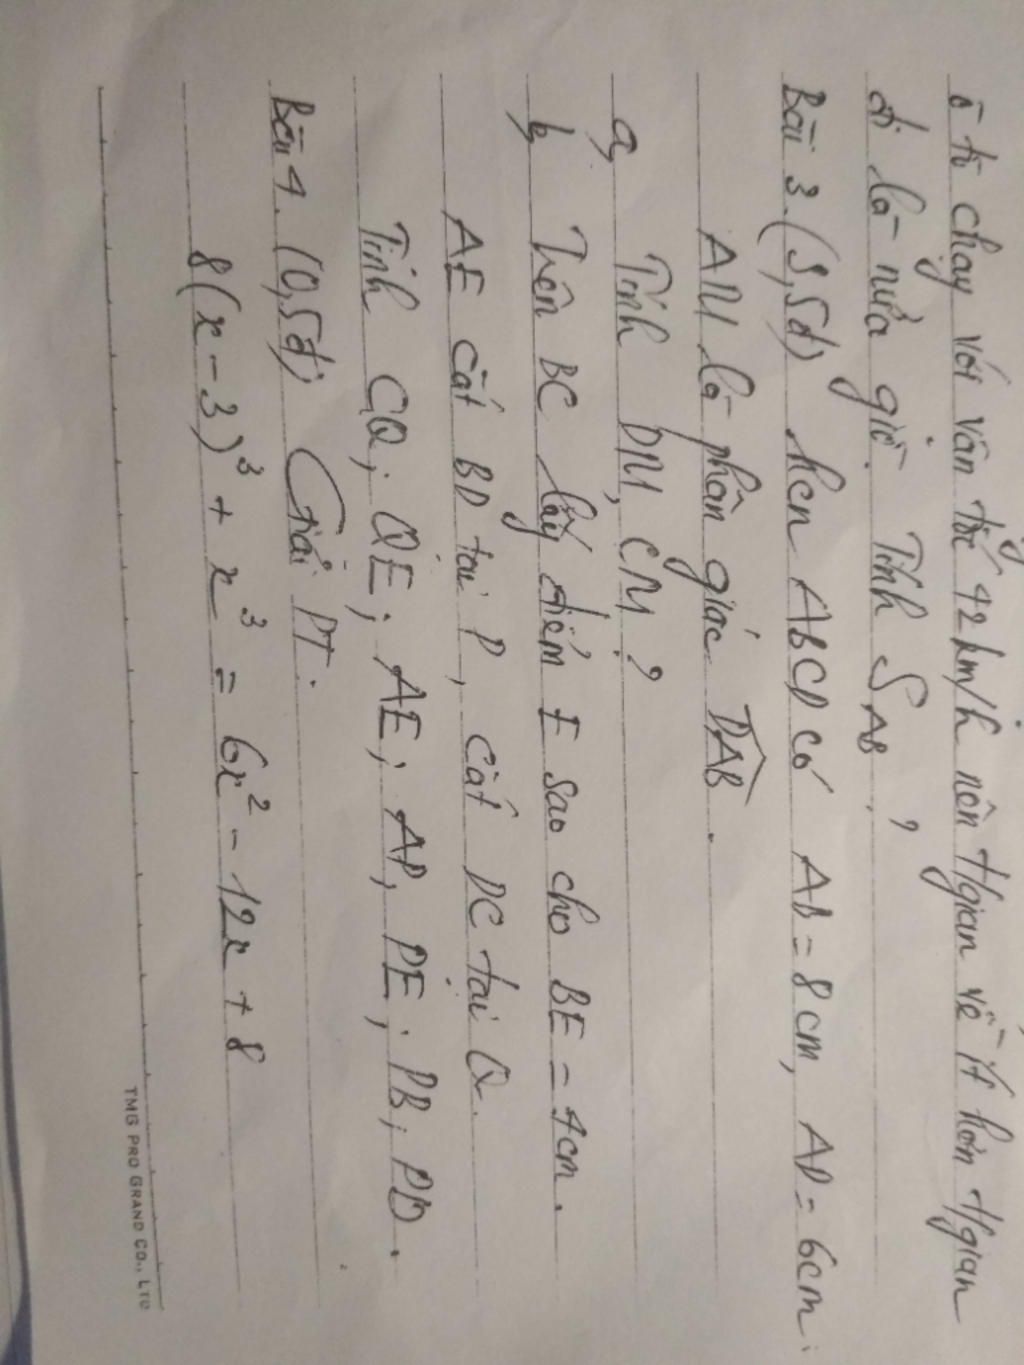 ô tô chạy với vận tốc 42km/h nên thgian về ít hơn thgian
đi là nửa giờ. Tính SAB ?
Bài 3. (3,5đ) hcn ABCD có AB = 8cm, AD = 6cm.
AM là phân giác DAB.
a, Tính DM, CM ?
b, Trên BC lấy điểm E sao cho BE = 4cm.
AE cắt BD tại P, cắt DC tại Q.
Tính CQ; QE; AE; AP, PE; PB; PD.
Bài 4. (0,5đ) Giải PT.
8(x-3)³ + x³ = 6x² - 12x + 8
TMG PRO GRAND CO., LTD